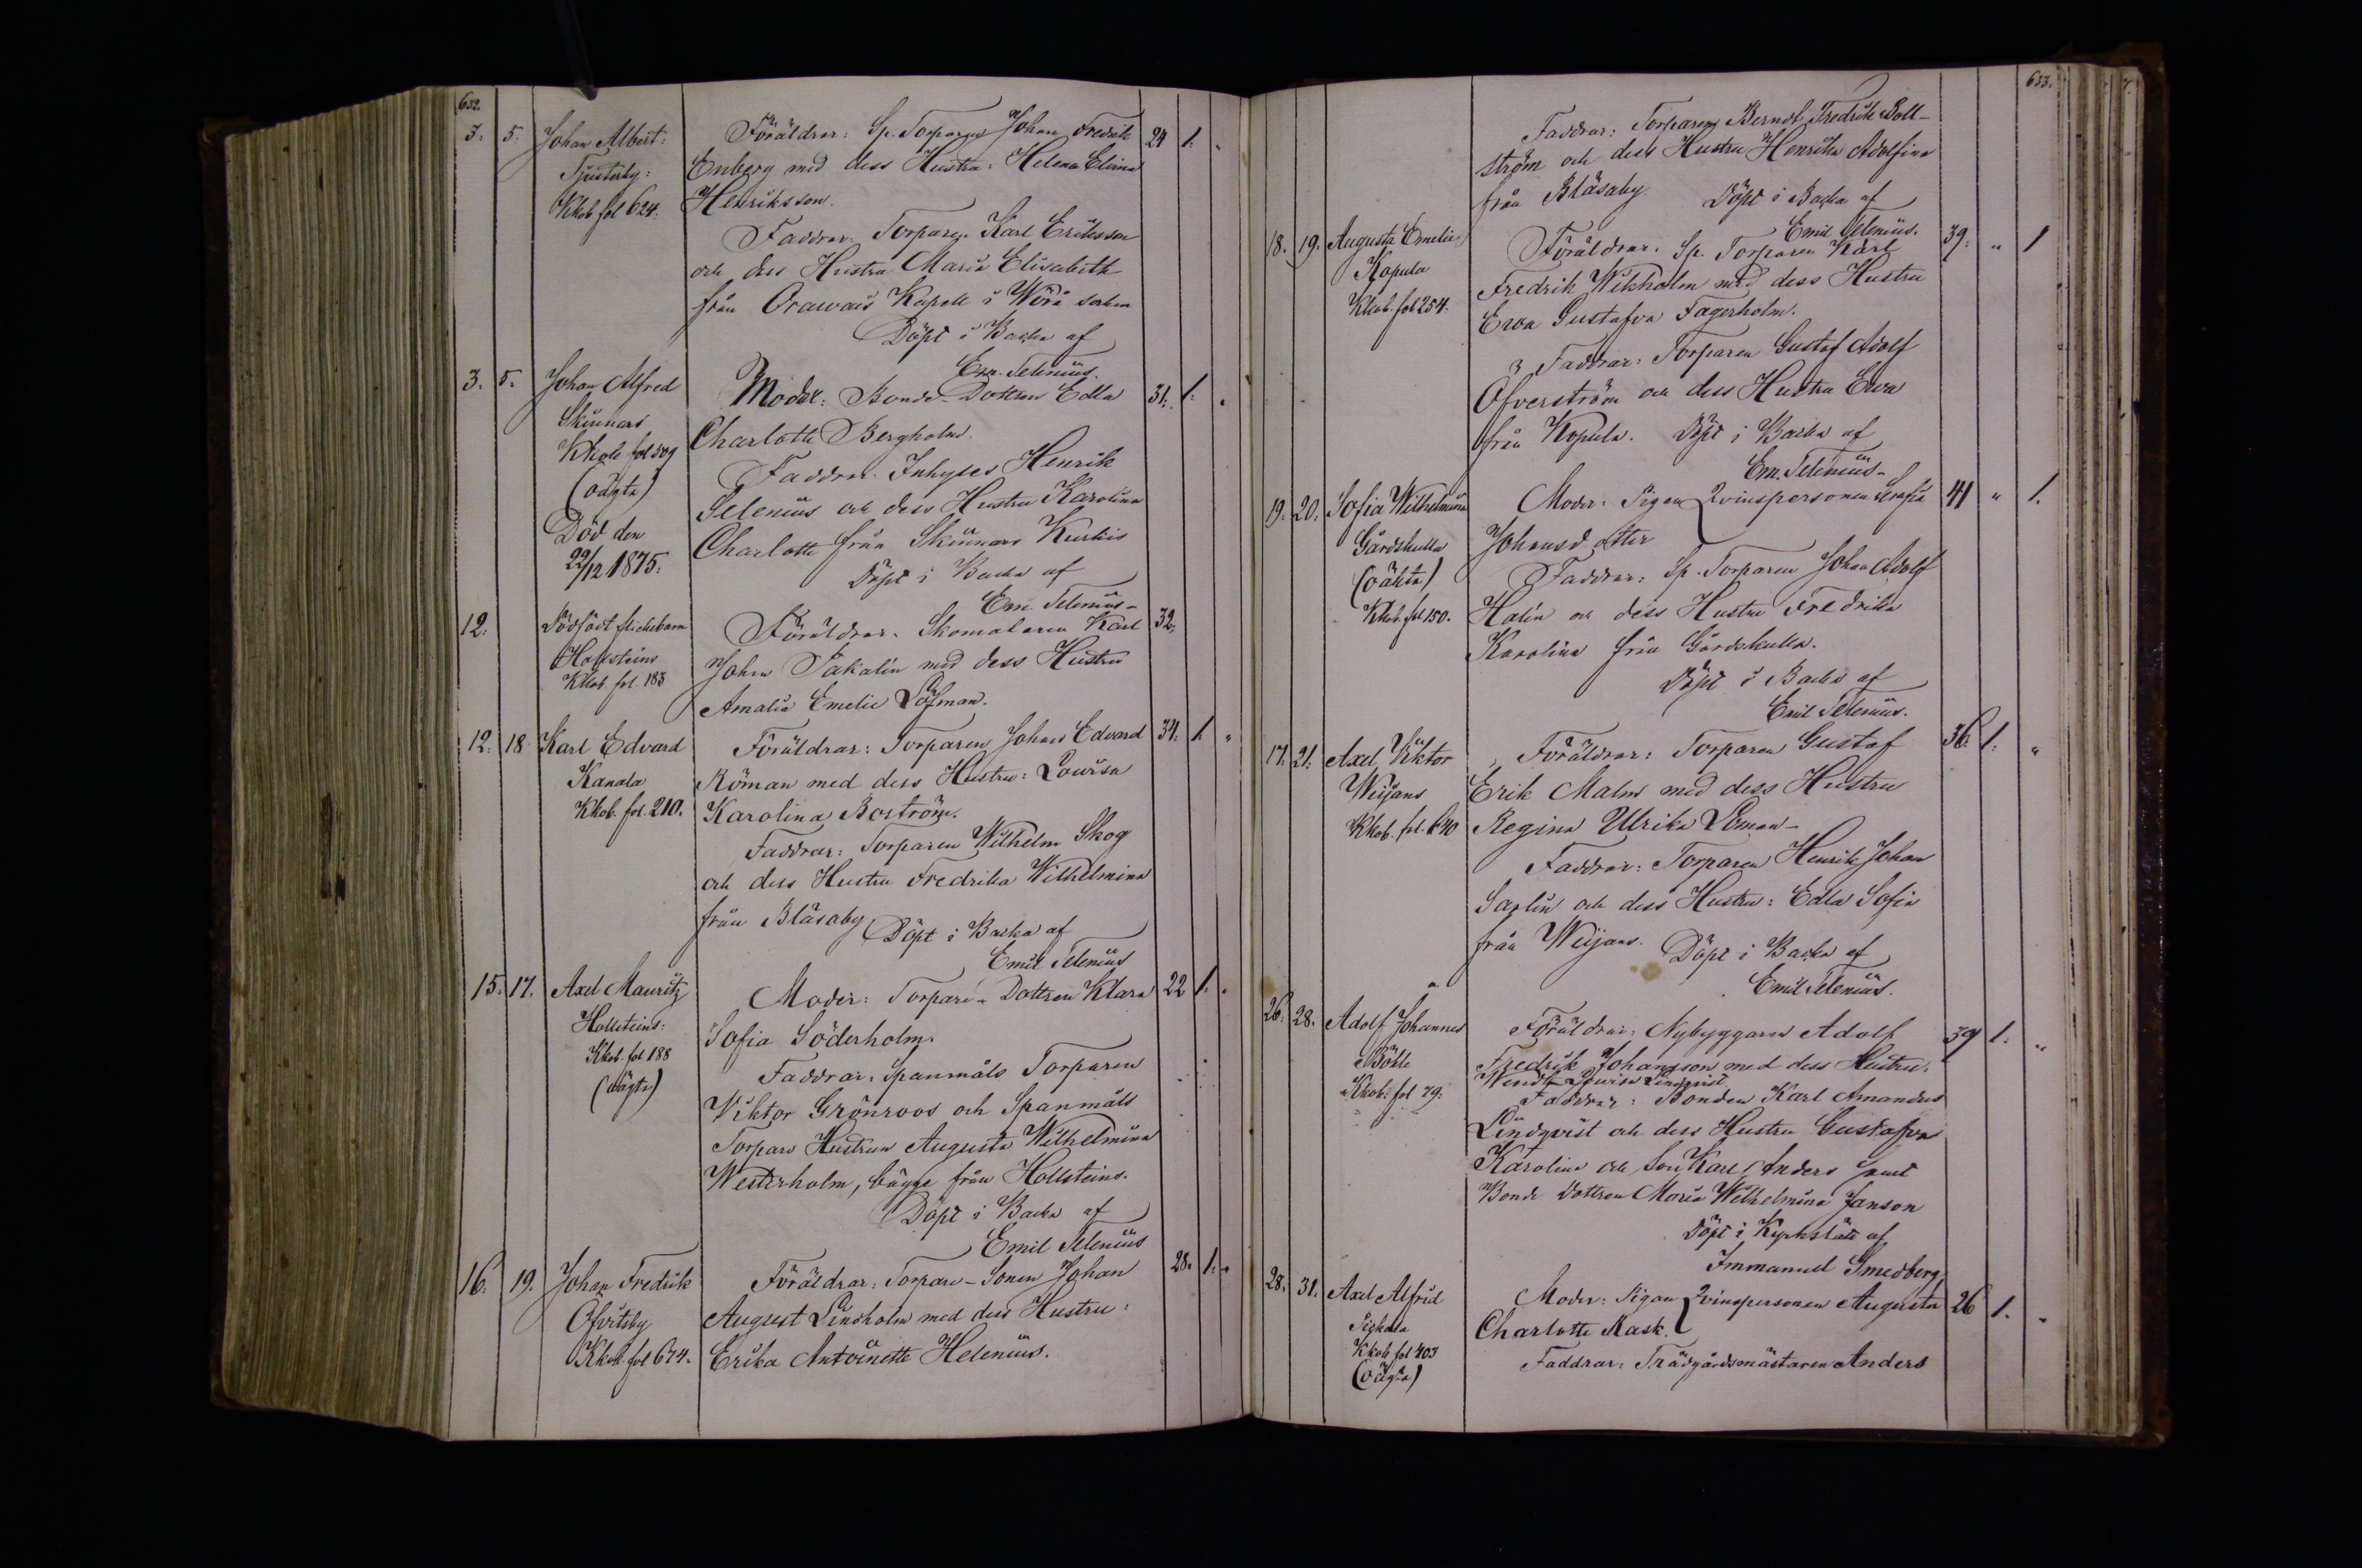 632.
3. 5. Johan Albert: Föräldrar: Sp. Torparen Johan Fredrik 24 1. "
Tjusterby: Enberg med dess Hustru: Helena Elina
Kkob fol 624. Henriksson.
Faddrar: Torparen Karl Eriksson
och dess Hustru Maria Elisabeth
från Orawais Kapell i Wörå socken
Döpt i Backa af
Em. Selenius.
3. 5. Johan Alfred Moder: Bonde-Dottren Edla 31. 1. "
Skinnars Charlotte Bergholm.
Kkob fol 509 Faddrar: Inhyses Henrik
(oägta) Selenius och dess Hustru Karolina
Död den Charlotte från Skinnars
22/12 1875. Döpt i Backa af
Em. Selenius-
12. Dödfödt flickebarn Föräldrar: Skomakaren Karl 32.
Hollsteins Johan Sakalin med dess Hustru
Kkob. fol. 183 Amalia Emelie Löfman.
12. 18 Karl Edvard Föräldrar: Torparen Johan Edvard 34. 1. "
Kanala Röman med dess Hustru: Lowisa
Kkob. fol. 210. Karolina Boström.
Faddrar: Torparen Wilhelm Skog
och dess Hustru Fredrika Wilhelmina
från Bläsaby Döpt i Backa af
Emil Selenius
15. 17. Axel Mauritz Moder: Torpare-Dottren Klara 22 1. "
Hollsteins: Sofia Söderholm.
Kkob. fol 188 Faddrar: Spanmåls Torparen
(oägta) Viktor Grönroos och Spanmåls
Torpare Hustrun Augusta Wilhelmina
Westerholm, bägge från Hollsteins.
Döpt i Backa af
Emil Selenius
16. 19. Johan Fredrik Föräldrar: Torpare-Sonen Johan 28. 1. "
Öfvitsby August Lindholm med dess Hustru:
Kkob. fol 674. Erika Antoinette Helenius.
633.
Faddrar: Torparen Berndt Fredrik Boll-
ström och dess Hustru Henrika Adolfina
från Bläsaby. Döpt i Backa af
Emil Selenius.
18. 19. Augusta Emelie Föräldrar: Sp. Torparen Karl 39. " 1
Kopula Fredrik Wikholm med dess Hustru
Kkob. fol 254. Ewa Gustafva Fagerholm.
Faddrar: Torparen Gustaf Adolf
Öfverström och dess Hustru Ewa
från Kopula. Döpt i Backa af
Em. Selenius-
19. 20. Sofia Wilhelmina Moder: Pigan Qvinspersonen Serafia 41 " 1.
Gårdskulla Johansdotter
(oäkta) Faddrar: Sp. Torparen Johan Adolf
Kkob. fol 150. Halin och dess Hustru Fredrika
Karolina från Gårdskulla.
Döpt i Backa af
Emil Selenius.
17. 21. Axel Viktor Föräldrar: Torparen Gustaf 36. 1. "
Weijans Erik Malm med dess Hustru
Kkob. fol. 640 Regina Ulrika Löman-
Faddrar: Torparen Henrik Johan
Saxlin och dess Hustru: Edla Sofia
från Weijans. Döpt i Backa af
Emil Selenius.
26. 28. Adolf Johannes Föräldrar: Nybyggaren Adolf 39 1. "
Böhle Fredrik Johansson med dess Hustru.
Kkob. fol 79. Wendla Lowisa Lindqvist
Faddrar: Bonden Karl Amandus
Lindqvist och dess Hustru Gustafva
Karolina och Son Karl Anders samt
Bonde Dottren Maria Wilhelmina Janson
Döpt i Kyrkslätt af
Immanuel Smedberg.
28. 31. Axel Alfrid Moder: Pigan Qvinspersonen Augusta 26 1. "
Pickala Charlotte Mask.
Kkob fol 403 Faddrar: Trädgårdsmästaren Anders
(oägta)